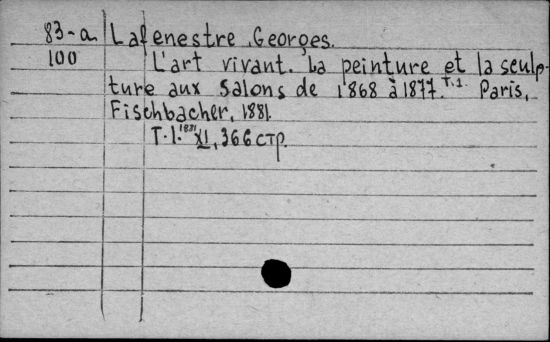 83-a Lafenestre, Georges.
100 L'art vivant. La peinture et la sculp-
ture aux Salons de 1868 à 1877. T.1. Paris,
Fischbacher, 1881.
T.1. 1881 XI, 366 стр.